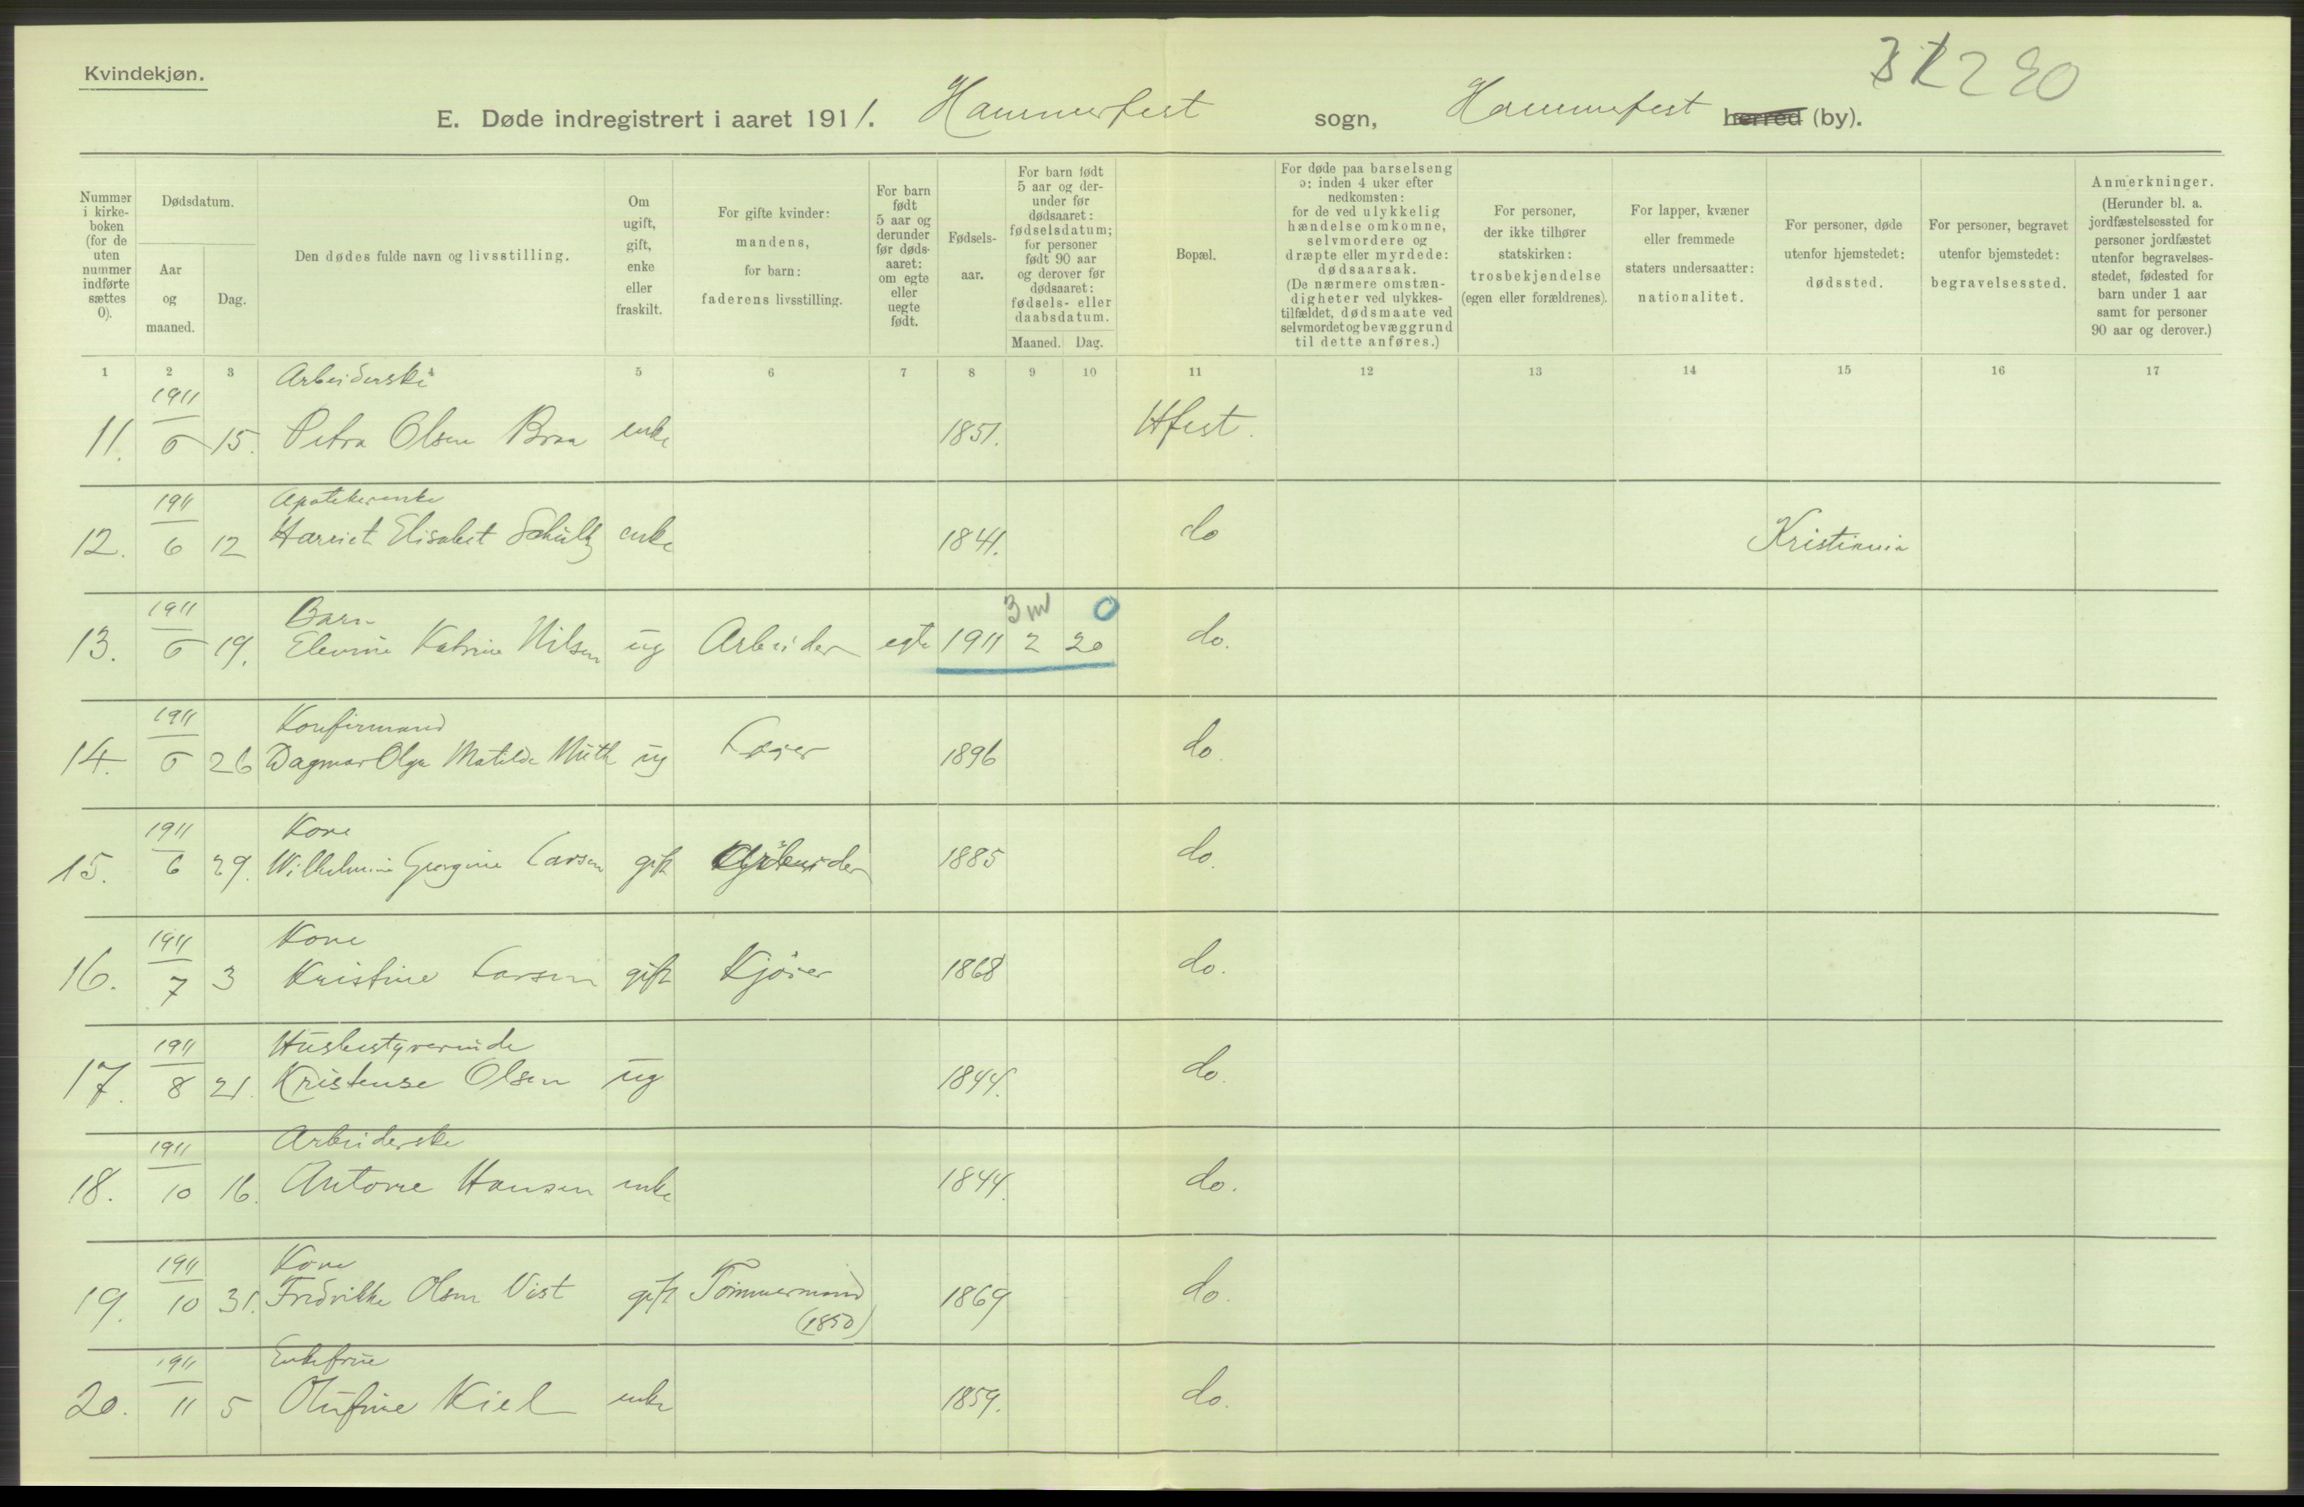 Kvindekjøn.
E. Døde indregistrert i aaret 1911. Hammerfest sogn, Hammerfest herred (by).
Nummer i kirkeboken (for de uten nummer indførte sættes 0).
Dødsdatum.
Aar og maaned.
Dag.
Den dødes fulde navn og livsstilling.
Om ugift, gift, enke eller fraskilt.
For gifte kvinder: mandens, for barn: faderens livsstilling.
For barn født 5 aar og derunder før dødsaaret: om egte eller uegte født.
Fødselsaar.
For barn født 5 aar og derunder før dødsaaret: fødselsdatum; for personer født 90 aar og derover før dødsaaret: fødsels- eller daabsdatum.
Maaned. Dag.
Bopæl.
For døde paa barselseng ɔ: inden 4 uker efter nedkomsten: for de ved ulykkelig hændelse omkomne, selvmordere og dræpte eller myrdede: dødsaarsak. (De nærmere omstændigheter ved ulykkestilfældet, dødsmaate ved selvmordet og bevæggrund til dette anføres.)
For personer, der ikke tilhører statskirken: trosbekjendelse (egen eller forældrenes).
For lapper, kvæner eller fremmede staters undersaatter: nationalitet.
For personer, døde utenfor hjemstedet: dødssted.
For personer, begravet utenfor bjemstedet: begravelsessted.
Anmerkninger. (Herunder bl. a. jordfæstelsessted for personer jordfæstet utenfor begravelsesstedet, fødested for barn under 1 aar samt for personer 90 aar og derover.)
1 2 3 4 5 6 7 8 9 10 11 12 13 14 15 16 17
1911 Arbeiderske
11. 6 15. Petra Olsen Braa enke 1851. Hfest.
1911 Apotekerenke
12. 6 12 Harriet Elisabet Schultz enke 1841. do Kristiania
1911 Barn 3 m 0
13. 6 19. Elevine Katrine Nilsen ug Arbeider egte 1911 2 20 do.
1911 Konfirmand
14. 6 26 Dagmar Olga Matilde Muth ug 1896 do.
1911 Kone
15. 6 29. Wilhelmine Georgine Larsen gift 1885 do.
1911 Kone
16. 7 3 Kristine Larsen gift Kjøier 1868 do.
1911 Husbestyrerinde
17. 8 21. Kristense Olsen ug 1844. do.
1911 Arbeiderske
18. 10 16. Antone Hansen enke 1844. do.
1911 Kone
19. 10 31. Fredrikke Olsen Vist gift Tømmermand 1869 do.
(1850)
1911 Enkefrue
20. 11 5 Olufine Kiel enke 1859. do.